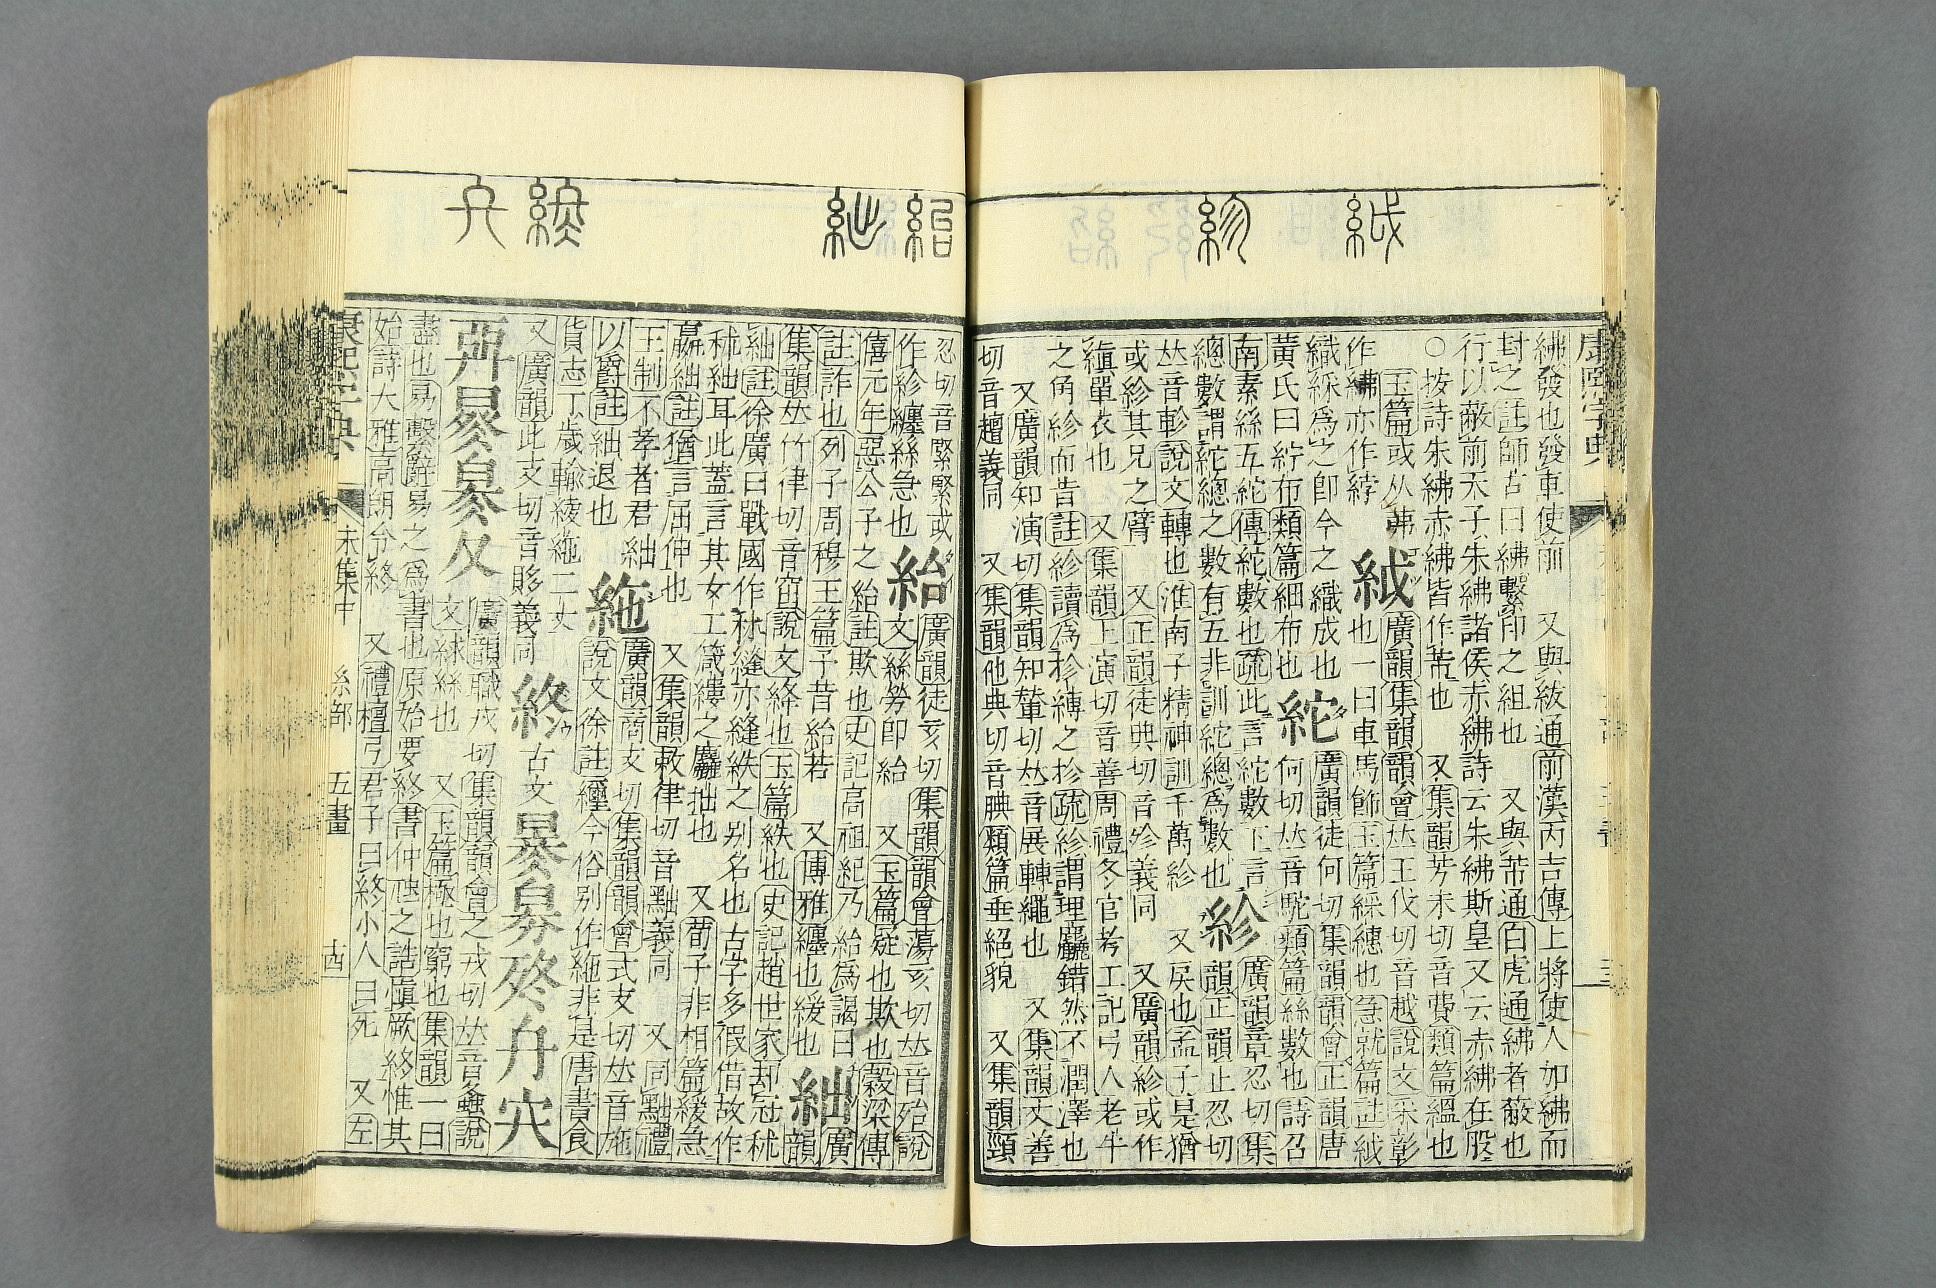 紱 紾
紿 絀 終 
康熙字典
紼發也發車使前 又與紱通前漢丙吉傳上將使人加紼而
封之註師古曰紼繫印之組也 又與芾通白虎通紼者蔽也
行以蔽前天子朱紼諸侯赤紼詩云朱紼斯皇又云赤紼在股
○按詩朱紼赤紼皆作芾也 又集韻芳未切音費類篇縕也
玉篇或从茀 紱 廣韻集韻韻會𠀤王伐切音越說文采彰
作紼亦作綍 也一曰車馬飾玉篇綵繐也急就篇註紱
織綵爲之卽今之織成也 紽 廣韻徒何切集韻韻會正韻唐
黃氏曰紵布類篇細布也 何切𠀤音駝類篇絲數也詩召
南素絲五紽傳紽數也疏此言紽數下言
總數謂紽總之數有五非訓紽總爲數也 紾 廣韻章忍切集
韻正韻止忍切
𠀤音軫說文轉也淮南子精神訓千萬紾 又戾也孟子是猶
或紾其兄之臂 又正韻徒典切音殄義同 又廣韻紾或作
縝單衣也 又集韻上演切音善周禮冬官考工記弓人老牛
之角紾而昔註紾讀爲抮縛之抮疏紾謂理麤錯然不潤澤也
又廣韻知演切集韻知輦切𠀤音展轉繩也 又集韻丈善
切音趙義同 又集韻他典切音腆類篇垂絕貌 又集韻頸
忍切音緊緊或
作紾纏絲急也 紿 廣韻徒亥切集韻韻會蕩亥切𠀤音殆說
文絲勞卽紿 又玉篇疑也欺也穀梁傳
僖元年惡公子之紿註欺也史記高祖紀乃紿爲謁曰
註詐也列子周穆王篇子昔紿若 又博雅纏也緩也 絀 廣
韻
集韻𠀤竹律切音窋說文絳也玉篇紩也史記趙世家却冠秫
絀註徐廣曰戰國作秫縫亦縫紩之别名也古字多假借故作
秫絀耳此蓋言其女工箴縷之麤拙也 又荀子非相篇緩急
嬴絀註猶言屈伸也 又集韻敕律切音黜義同 又同黜禮
王制不孝者君絀
以爵註絀退也 絁 廣韻商支切集韻韻會式支切𠀤音施
說文徐註䌳今俗别作絁非是唐書食
貨志丁歲輸綾絁二丈
又廣韻此支切音貤義同 終 古文
廣韻職戎切集韻韻會之戎切𠀤音螽說
文絿絲也 又玉篇極也窮也集韻一曰
盡也易繫辭易之爲書也原始要終書仲虺之誥愼厥終惟其
始詩大雅高朗令終 又禮檀弓君子曰終小人曰死 又左
康熙字典 未集中 糸部 五畫 十四